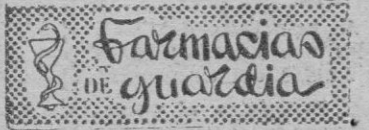 Farmacias
DE guardia